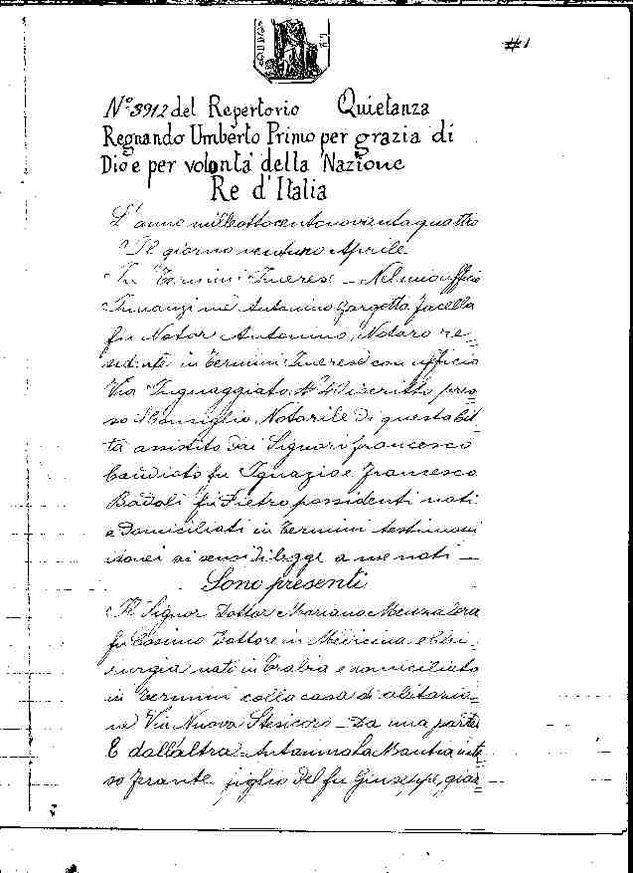 #1
Nº 3912 del Repertorio Quietanza
Regnando Umberto Primo per grazia di
Dio e per volontà della Nazione
Re d'Italia
L'anno milleottocentonovantaquattro
Il giorno ventuno Aprile
In Termini Imerese _ Nel mio ufficio
Innanzi me Antonino Gargotta Jacella
fu Notar Antonino, Notaro re=
sidente in Termini Imerese con ufficio
Via Inguaggiato Nº 42 iscritto pres=
so il Consiglio Notarile di questa cit=
tà assistito dai Signori Francesco
Candioto fu Ignazio e Francesco
Badali fu Pietro possidenti nati
e domiciliati in Termini testimoni
idonei ai sensi di legge a me noti _
Sono presenti
Il Signor Dottor Mariano
fu Cosimo Dottore in Medicina e Chi=
rurgia nato in Trabia e domiciliato
in Termini colla casa di abitazio=
ne Via Nuova Stesicoro _ Da una parte
E dall'altra Mantia inte=
so figlio del fu Giuseppe,